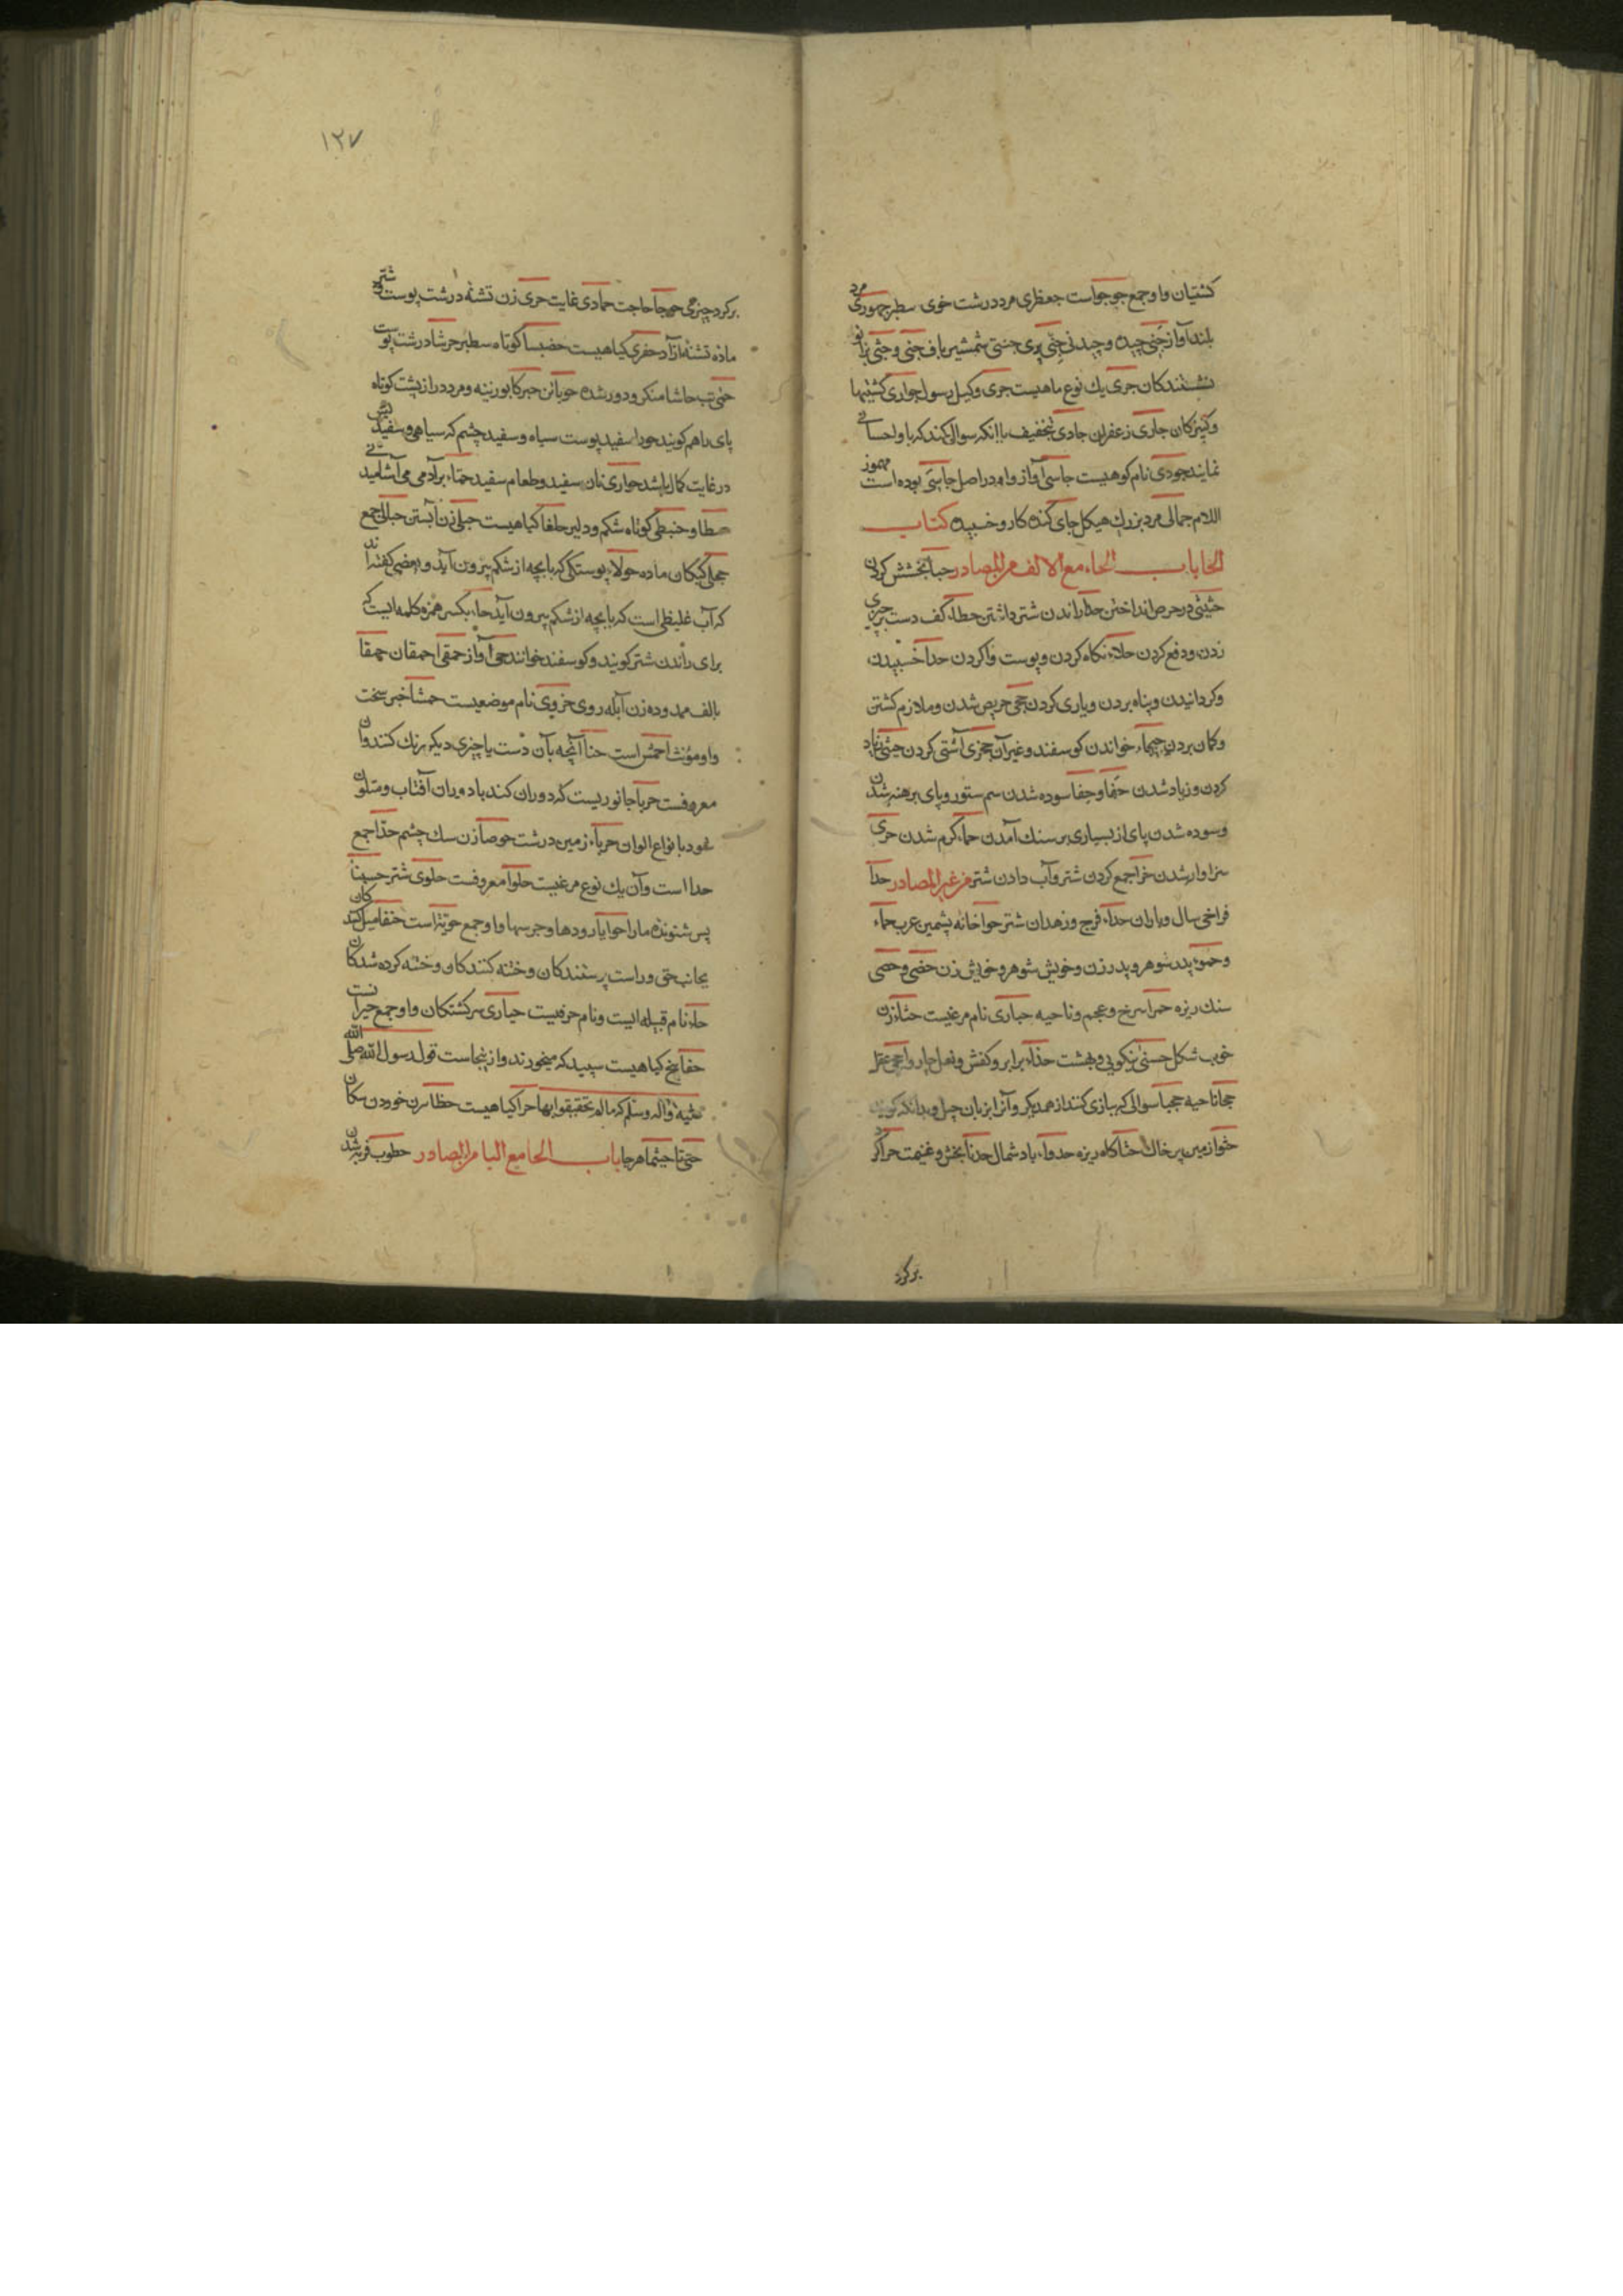 کشتیان واو جمع جو جواست جعظری مرد درشت خوی سطبر جهوری مرد
بلند آواز جنی چیده و چیدنی جنی پری جنثی شمشیر باف جثی و جثی بزانو
نشینندکان جری یك نوع ماهیست جری وکیل رسول جواری کشتیها
وکنیزکان جاری زعفران جادی بتخفیف یا انکه سوال کند که باو احسانی
نمایند جودی نام کوهیست جاسی آواز واو در اصل جاسی بوده است مهموز
اللام جمالی مرد بزرك هیکل جای کنده کار و خسبیده کتاب
الحا باب الحاء مع الالف من المصادر حبا بخشش کردن
حثیثی در حرص انداختن حدا راندن شتر داشتن حطاء کف دست بر چیزی
زدن و دفع کردن حلاء نکاه کردن و پوست وا کردن حدا خسپیدن
وکردانیدن وپناه بردن ویاری کردن حجی حریص شدن وملازم کشتن
وکمان بردن حیحاء خواندن کوسفند وغیر آن حجزی آشتی کردن حثی زیاد
کردن و زیاد شدن حفا وحفا سوده شدن سم ستور و پای برهنه شدن
وسوده شدن پای از بسیاری بر سنك آمدن حماء کرم شدن حری
سزاوار شدن حزا جمع کردن شتر وآب دادن شتر من غیر المصادر حدا
فراخی سال و باران حداء فرج و زهدان شتر حوا خانه پشمین عرب حماء
وحموء پدر شوهر و پدر زن وخویش شوهر وخویش زن حضی وحصی
سنك ریزه حمرا سرخ وعجم وناحیه حباری نام مرغیست حسناء زن
خوب شکل حسنی نیکویی و بهشت حذاء برابر وکفش ونعل چاروا حجی عقل
حجا ناحیه حجیا سوالی که ببازی کنند از همدیکر وآنرا بزبان چیل وبدانکه کویند
حثواز مین پر خاك حثا کاه ریزه حدواء باد شمال حدیا بخش و غنیمت حرا کرد
برکرد
۱۲۷
برکرد چیزی حوجا حاجت حمادی غایت حری زن تشنه درشت پوست شتر
ماده تشنه از آد حفری کیاهیست حضبسا کوتاه سطبر حرشا درشت پوست
حمی تب حاشا منکر و دور شده حوبا تن حبرکا بوزینه ومرد دراز پشت کوتاه
پای را هم کویند حورا سفید پوست سیاه وسفید چشم که سیاهی وسفیدیش
در غایت کمال باشد حواری نان سفید وطعام سفید حماء برآدمی می آشامید
حطا و حنبطی کوتاه شکم و دلیر حلفا کیاهیست حبلی زن آبستن حبالی جمع
حجلی کبکان ماده حولاء پوستکی که با بچه از شکم بیرون آید وبعضی کفته اند
که آب غلیظی است که با بچه از شکم بیرون آید حاء بکسر همزه کلمه ایست که
برای راندن شتر کویند وکوسفند خوانند حی آواز حمقی احمقان حمقا
بالف ممدوده زن آبله روی حزوی نام موضعیست حمشا خبر سخت
واو مؤنث احمش است حنا آنچه بآن دست یا چیزی دیکر رنك کنند وآن
معروفست حربا جانوریست که دوران کند با دوران آفتاب و متلون
شود بانواع الوان حرباء زمین درشت حوصا زن تنك چشم حدا جمع
حدا است وآن یك نوع مرغیست حلوا معروفست حلوی شتر حسینا
پس شنونده مارا حوایا رودها و جرسها واو جمع حویته است حنفا میل کنندکان
بجانب حق وراست پرستندکان وختنه کنندکان وختنه کرده شدکان
حاء نام قبیله ایست ونام حرفیست حیاری سرکشتکان واو جمع حیرانست
حفا بیخ کیاهیست سپید که میخورند و ازینجاست قول رسول الله صلی الله
علیه وآله وسلم که مالم تحتفئوا بها حرا کیاهیست حظا
حتی تا حیثما هرجا باب الحا مع البا من المصادر حطوب فربه شدن